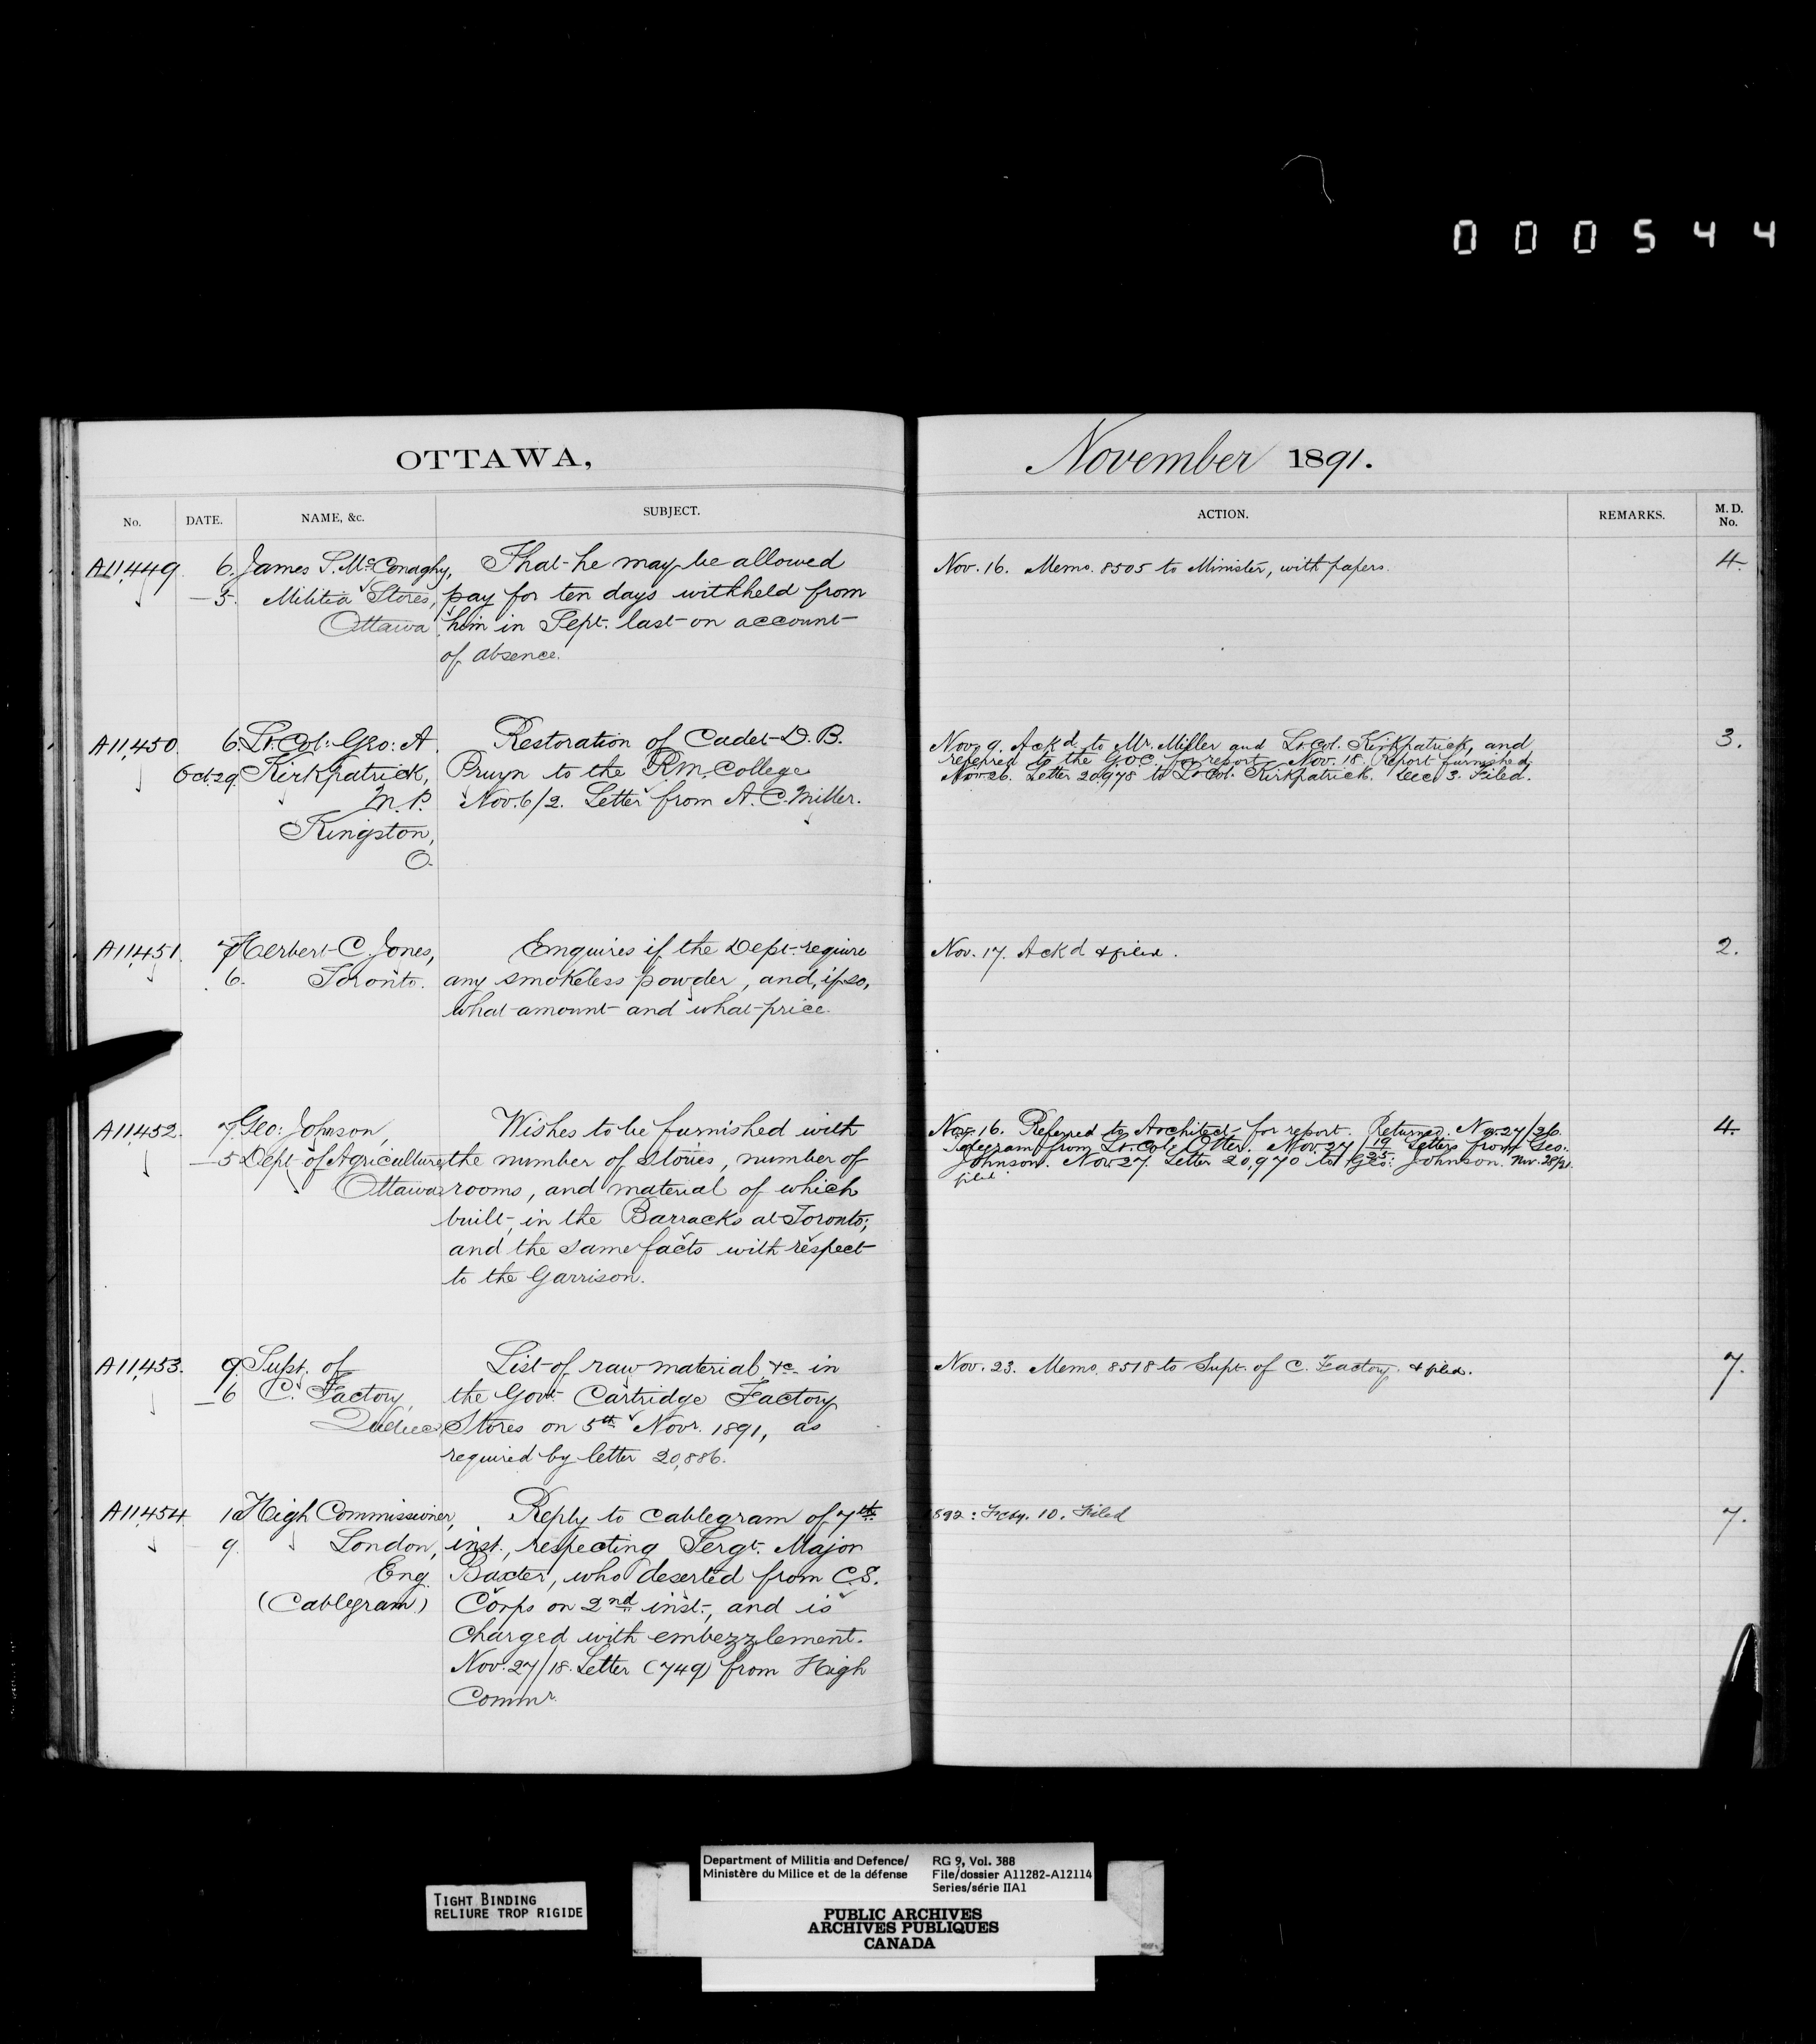 000544
OTTAWA,
November 1891.
No. DATE. NAME, &c. SUBJECT.
ACTION. REMARKS. M. D. No.
A11,449 6. James S. McConaghy, That he may be allowed
—5. Militia Stores, pay for ten days withheld from
Ottawa him in Sept. last on account
of absence.
Nov. 16. Memo. 8505 to Minister, with papers. 4.
A11,450. 6. Lt. Col: Geo: A. Restoration of Cadet D. B.
Oct. 29. Kirkpatrick, Pruyn to the R.M. College
M. P. Nov. 6/2. Letter from A. C. Miller.
Kingston,
O.
Nov. 9. Ackd. to Mr. Miller and Lt. Col. Kirkpatrick, and 3.
referred to the G.O.C. for report. Nov. 18. report furnished.
Nov. 26. Letter 20,978 to Lt. Col. Kirkpatrick. Dec 3. Filed.
A11,451. 7 Herbert C. Jones, Enquires if the Dept. require
6. Toronto. any smokeless powder, and, if so,
what amount and what price.
Nov. 17. Ackd & filed. 2.
A11,452. 7. Geo: Johnson, Wishes to be furnished with
—5 Dept. of Agriculture, the number of stories, number of
Ottawa rooms, and material of which
built, in the Barracks at Toronto;
and the same facts with respect
to the Garrison.
Nov. 16. Referred to Architect for report. Returned. Nov. 27/26. 4.
Telegram from Lt. Col. Otter. Nov. 27/19/25 Letters from Geo:
Johnson. Nov 27. Letter 20,970 to Geo: Johnson. Nov. 28/21
filed
A11,453. 9. Supt. of List of raw material &c. in
—6 C. Factory, the Govt. Cartridge Factory
Quebec Stores on 5th Novr. 1891, as
required by letter 20,886.
Nov. 23. Memo. 8518 to Supt. of C. Factory. & filed. 7.
A11,454 10 High Commissioner, Reply to cablegram of 7th
9. London, inst., respecting Sergt. Major
Eng. Baxter, who deserted from C.S.
(Cablegram) Corps on 2nd inst., and is
charged with embezzlement.
Nov. 27/18. Letter (749) from High
Commr.
892: Feby. 10. Filed 7.
TIGHT BINDING
RELIURE TROP RIGIDE
Department of Militia and Defence/ RG 9, Vol. 388
Ministère du Milice et de la défense File/dossier A11282-A12114
Series/série IIA1
PUBLIC ARCHIVES
ARCHIVES PUBLIQUES
CANADA